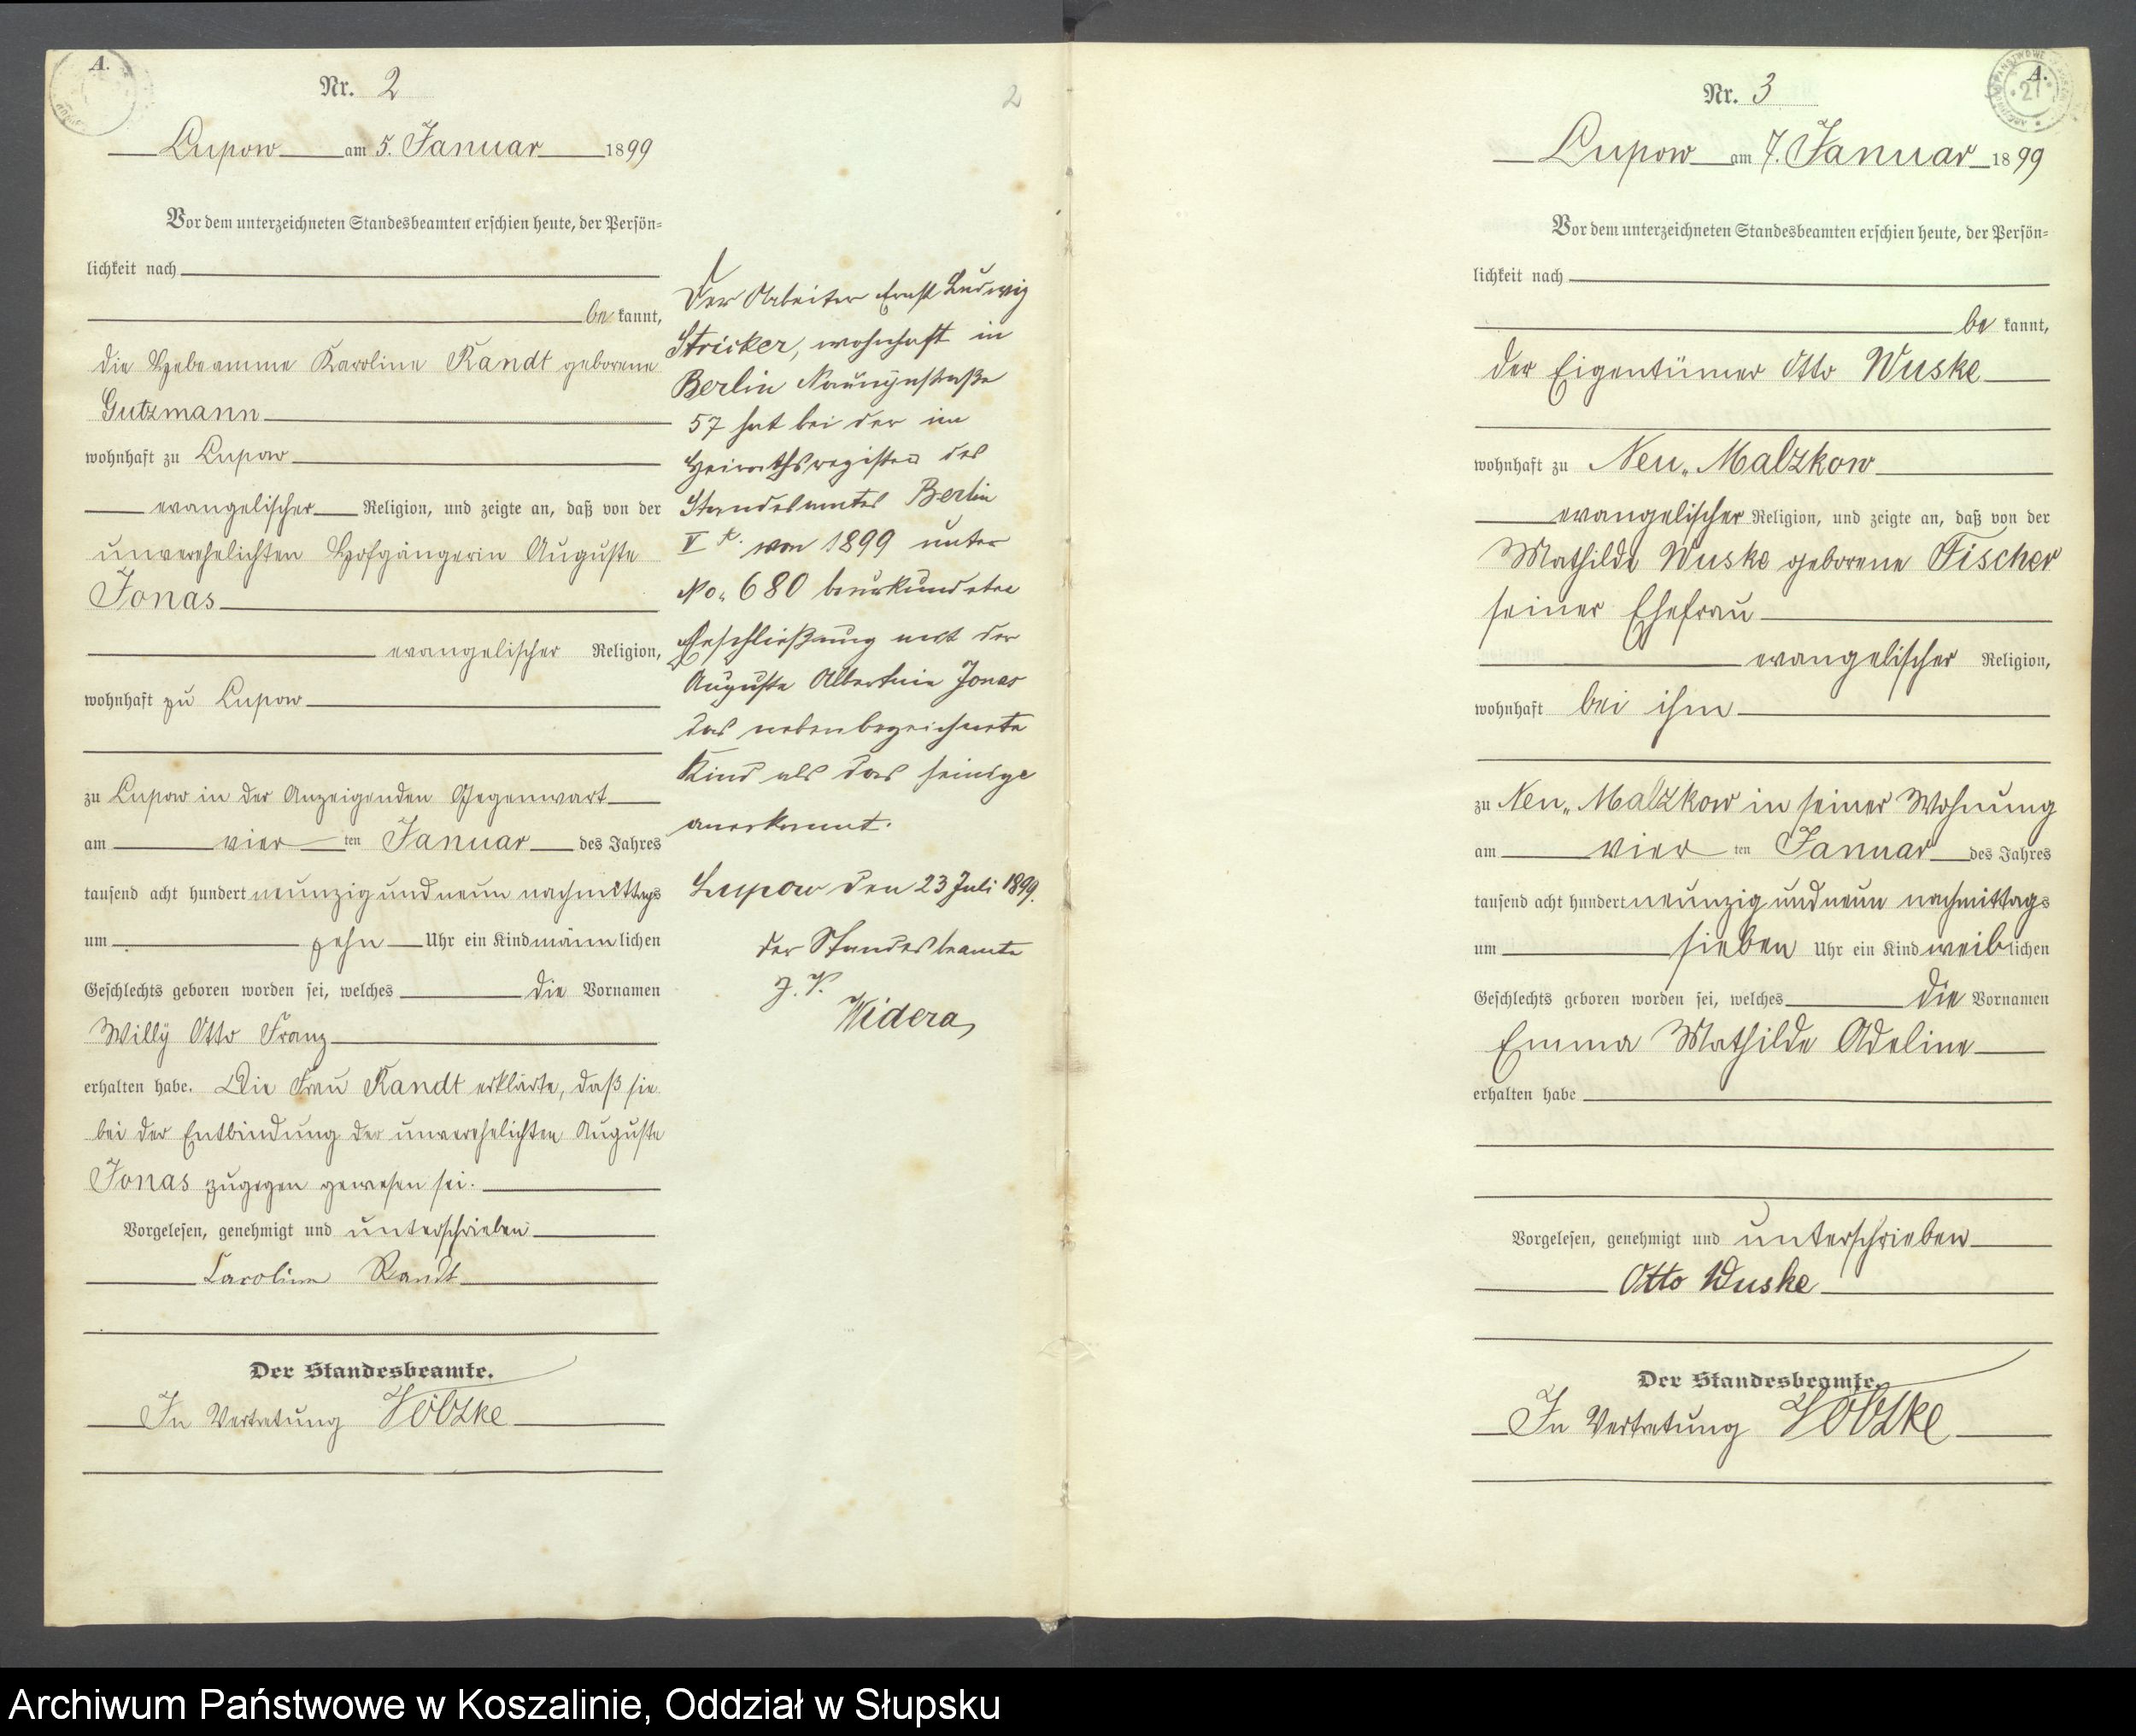 A.
Nr. 2
Lupow am 5. Januar 1899
Vor dem unterzeichneten Standesbeamten erschien heute, der Persön=
lichkeit nach
be kannt,
die Hebeamme Karoline Randt geborene
Gutzmann
wohnhaft zu Lupow
evangelischer Religion, und zeigte an, daß von der
unverehelichten Hofgängerin Auguste
Jonas
evangelischer Religion,
wohnhaft zu Lupow
zu Lupow in der Anzeigenden Gegenwart
am vier ten Januar des Jahres
tausend acht hundert neunzig und neun nachmittags
um zehn Uhr ein Kind männlichen
Geschlechts geboren worden sei, welches die Vornamen
Willy Otto Franz
erhalten habe. Die Frau Randt erklärte, daß sie
bei der Entbindung der unverehelichten Auguste
Jonas zugegen gewesen sei.
Vorgelesen, genehmigt und unterschrieben
Caroline Randt
Der Standesbeamte.
In Vertretung
2
Der Arbeiter Ernst Ludwig
Stricker, wohnhaft in
Berlin Naunynstraße
57 hat bei der im
Heirathsregister des
Standesamtes Berlin
V von 1899 unter
No. 680 beurkundeten
Eheschließung mit der
Auguste Albertine Jonas
das nebenbezeichnete
Kind als das seinige
anerkannt.
Lupow den 23 Juli 1899.
Der Standesbeamte
J. V.
Widera
A.
27
Nr. 3
Lupow am 7. Januar 1899
Vor dem unterzeichneten Standesbeamten erschien heute, der Persön=
lichkeit nach
be kannt,
der Eigentümer Otto Wuske
wohnhaft zu Neu-Malzkow
evangelischer Religion, und zeigte an, daß von der
Mathilde Wuske geborene Fischer
seiner Ehefrau
evangelischer Religion,
wohnhaft bei ihm
zu Neu-Malzkow in seiner Wohnung
am vier ten Januar des Jahres
tausend acht hundert neunzig und neun nachmittags
um sieben Uhr ein Kind weiblichen
Geschlechts geboren worden sei, welches die Vornamen
Emma Mathilde Adeline
erhalten habe
Vorgelesen, genehmigt und unterschrieben
Otto Wuske
Der Standesbeamte.
In Vertretung
Archiwum Państwowe w Koszalinie, Oddział w Słupsku